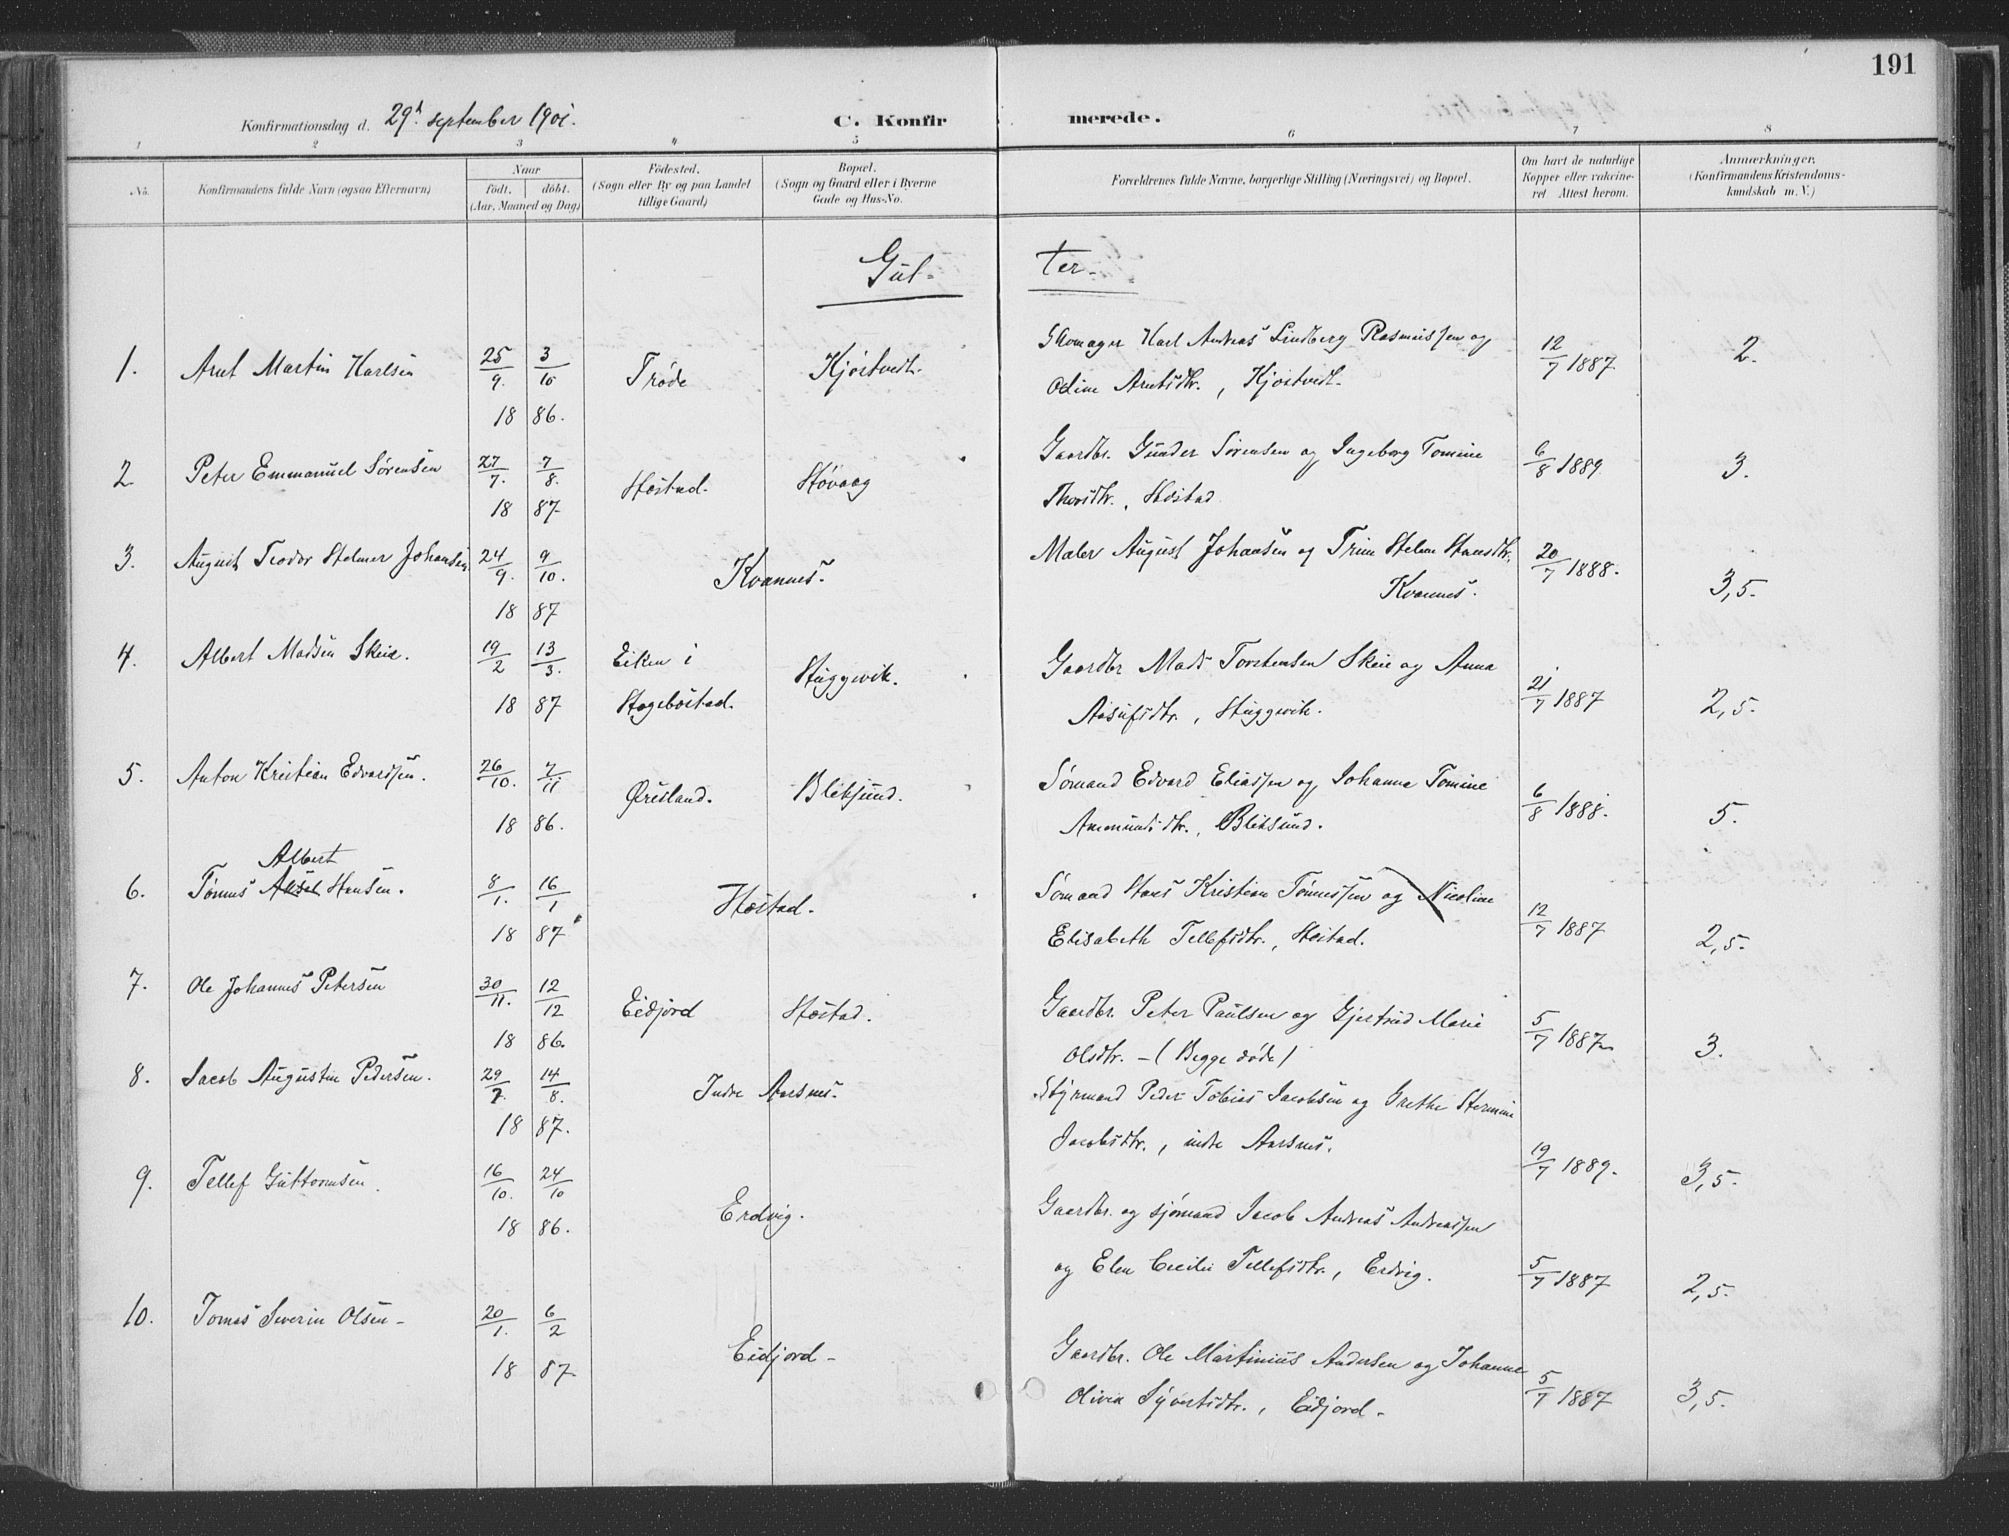 191
Konfirmationsdag d. 29de september 1901. C. Konfirmerede.
1 2 3 4 5 6 7 8
No. Konfirmandens fulde Navn (ogsaa Efternavn) Naar født. døbt. (Aar, Maaned og Dag) Fødested. (Sogn eller By og paa Landet tillige Gaard) Bopæl. (Sogn og Gaard eller i Byerne Gade og Hus-No. Forældrenes fulde Navne, borgerlige Stilling (Næringsvei) og Bopæl. Om havt de naturlige Kopper eller vakcineret Attest herom. Anmærkninger. (Konfirmandens Kristendomskundskab m. V.)
Gut- ter-
1. Arnt Martin Karlsen 25/9. 3/10 Trøde Kjøstvedt. Skomager Karl Andreas Lindberg Rasmussen og 12/7 1887 2.
18 86. Oline Arntsdtr., Kjøstvedt.
2 Peter Emmanuel Sørensen 27/7. 7/8. Hæstad. Høvaag Gaardbr. Gunder Sørensen og Ingeborg Tomine 6/8 1889 3.
18 87. Thorsdtr., Hæstad
3. August Teodor Helmer Johansen 24/9. 9/10. Kvannes. Maler August Johansen og Trine Helene Hansdtr. 20/7 1888. 3,5.
18 87 Kvannes.
4. Albert Madsen Skeie. 19/2 13/3. Eiken i Hægebostad. Stuggevik. Gaardbr Mads Torstensen Skeie og Anna 21/7 1887 2,5.
18 87 Aasufsdtr., Stuggevik.
5. Anton Kristian Edvardsen. 26/10. 7/11 Øresland. Bliksund. Sømand Edvard Eliassen og Johanne Tomine 6/8 1888. 5.
18 86. Ammundsdtr., Bliksund.
Albert
6. Tønnes Aksel Hansen. 8/1. 16/1 Hæstad. Sømand Hans Kristian Tønnessen og Nicoline 12/7 1887 2,5.
18 87 Elisabeth Tellefsdtr., Hæstad.
7. Ole Johannes Petersen 30/11. 12/12 Eidjord Hæstad. Gaardbr. Peter Paulsen og Gjertrud Marie 5/7 1887 3.
18 86. Olsdtr. - (Begge døde)
8. Jacob Augustin Pedersen. 29/7. 14/8. Indre Aarsnes. Styrmand Peder Tobias Jacobsen og Grethe Hermine
18 87. Jacobsdtr., indre Aarsnes. 19/7 1889. 3,5.
9. Tellef Guttormsen. 16/10. 24/10 Erdvig. Gaardbr. og sjømand Jacob Andreas Andreassen
18 86. og Elen Cecilie Tellefsdtr., Erdvig. 5/7 1887 2,5.
10. Tomas Severin Olsen- 20/1. 6/2 Eidjord- Gaardbr. Ole Martinius Andersen og Johanne
18 87. Olivia Syvertsdtr., Eidjord- 5/7 1887 3,5.